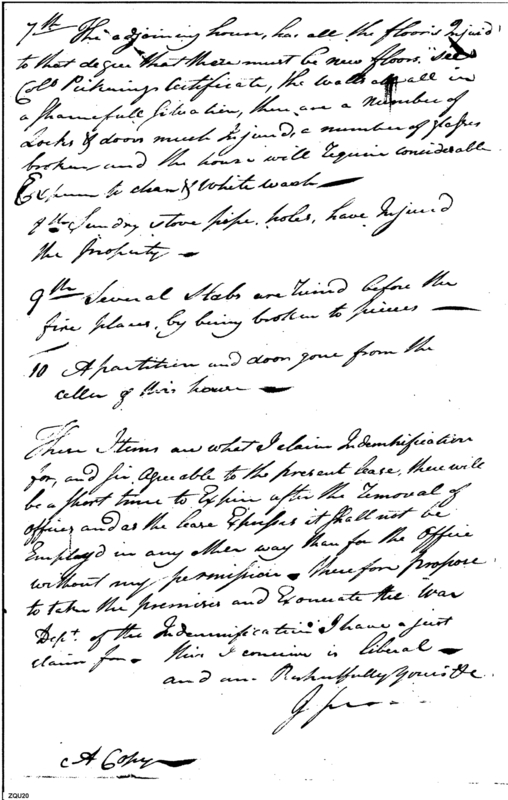 7th The adjoining house, has all the floors Injur'd
to that degree that there must be new floors, see
Colo Pickerings Certificate, the walls are all in
a Shamefull Situation, there are a number of
Locks & doors much Injured, a number of glasses
broken, and the house will require considerable
Expence to clean & White wash —
8th Sundry stove pipe holes, have Injured
the Property —
9th Several Slabs are Ruin'd before the
fire places, by being broken to pieces —
10 A partition and door gone from the
celler of this house —
These Items are what I claim Indemnification
for, and Sir Agreeable to the present lease, there will
be a short time to Expire after the removal of
offices and as the lease Expresses it shall not be
Employ'd in any other way than for the Office
without my permission. I therefore Propose
to take the premises and Exonerate the War
Dept. of the Indemnification I have a just
claim for — this I conceive is liberal —
and am Respectfully Yours &c
A Copy —
ZQU20